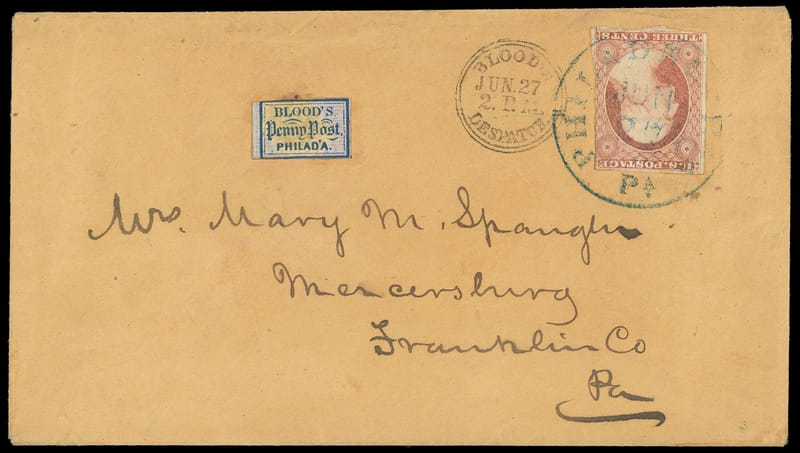 BLOOD'S
Penny Post,
PHILAD'A.
BLOOD'S
JUN. 27
2. P.M.
DESPATCH.
THREE CENTS
U.S. POSTAGE
PHILADA
JUN
27
Pa.
Mrs. Mary M. Spangler
Mercersburg
Franklin Co
Pa